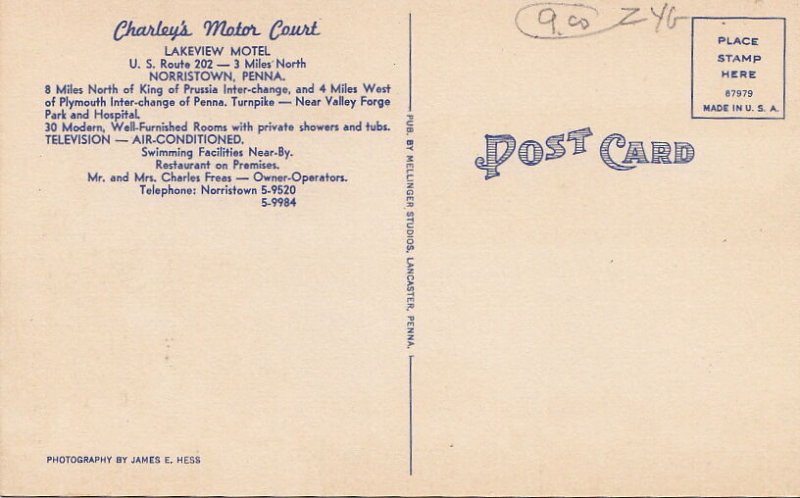 Charley's Motor Court
LAKEVIEW MOTEL
U. S. Route 202 — 3 Miles North
NORRISTOWN, PENNA.
8 Miles North of King of Prussia Inter-change, and 4 Miles West
of Plymouth Inter-change of Penna. Turnpike — Near Valley Forge
Park and Hospital.
30 Modern, Well-Furnished Rooms with private showers and tubs.
TELEVISION — AIR-CONDITIONED.
Swimming Facilities Near-By.
Restaurant on Premises.
Mr. and Mrs. Charles Freas — Owner-Operators.
Telephone: Norristown 5-9520
5-9984
PHOTOGRAPHY BY JAMES E. HESS
PUB. BY MELLINGER STUDIOS, LANCASTER, PENNA.
9.00
PLACE
STAMP
HERE
87979
MADE IN U. S. A.
POST CARD